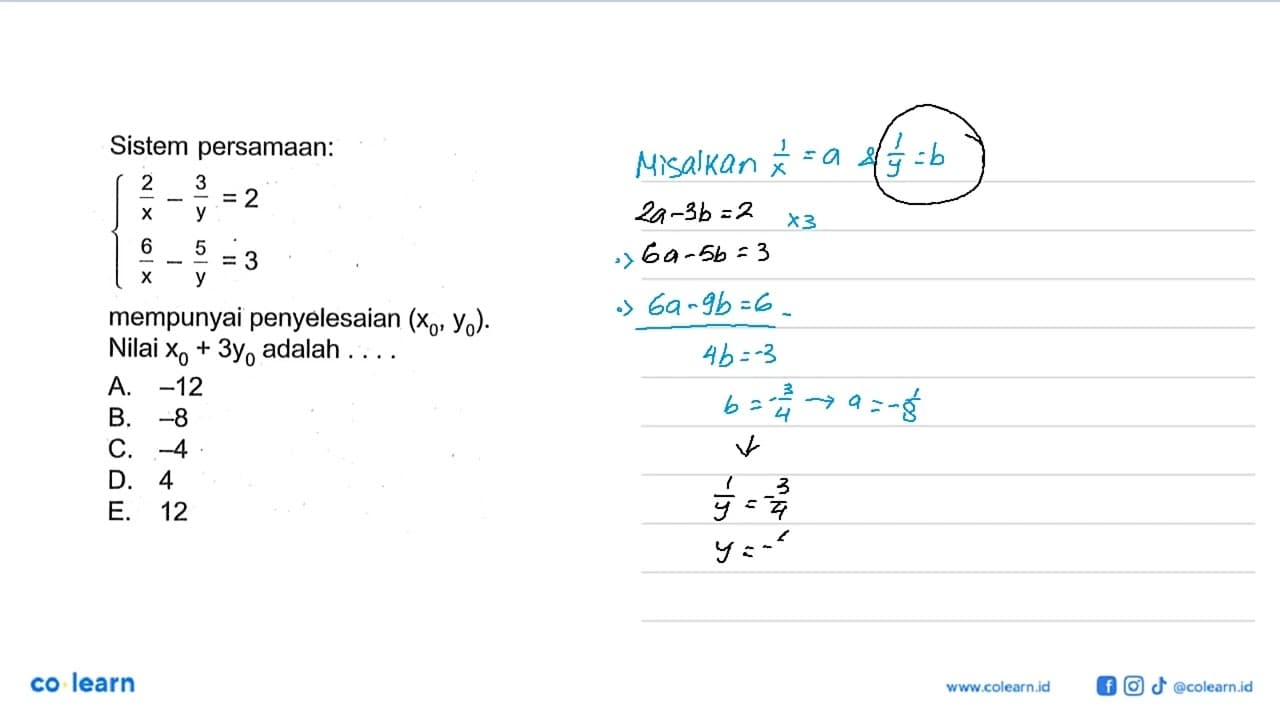 Sistem persamaan:
2/x − 3/y = 2
6/x − 5/y = 3
mempunyai penyelesaian (x₀, y₀).
Nilai x₀ + 3y₀ adalah . . . .
A. −12
B. −8
C. −4
D. 4
E. 12
Misalkan 1/x = a & 1/y = b
2a - 3b = 2 ×3
•> 6a - 5b = 3
•> 6a - 9b = 6 -
4b = -3
b = -3/4 → a = -1/8
↓
1/y = -3/4
y = -
co learn
www.colearn.id
@colearn.id